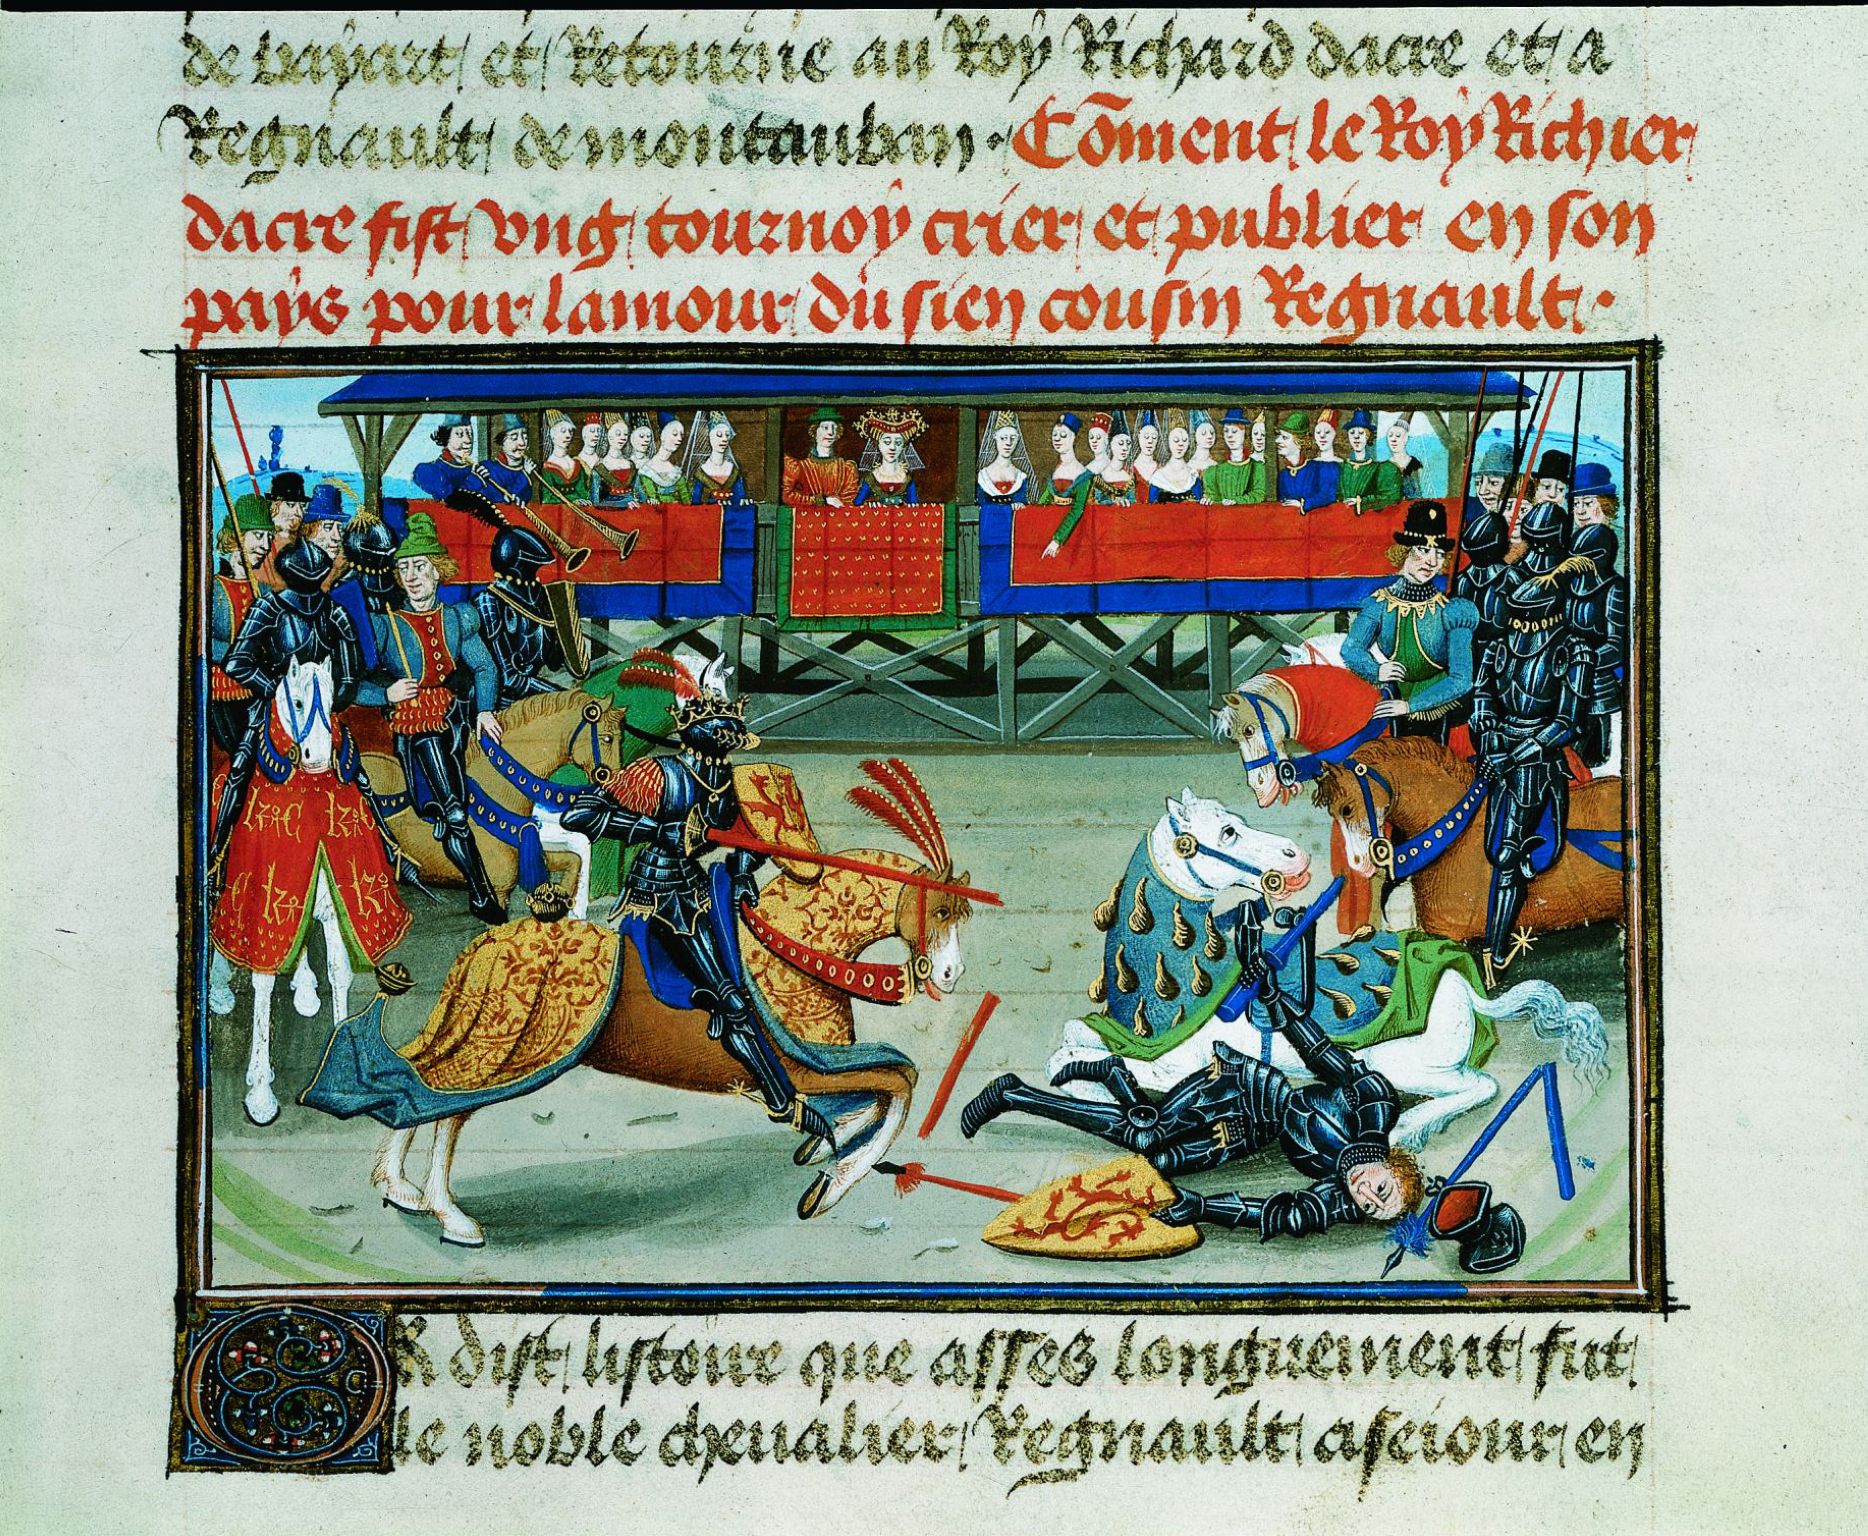 de bayart et Retourne au Roy Richard dacre et a
Regnault de montauban. Cõment le Roy Richier
dacre fist vng tournoy crier et publier en son
pays pour lamour du sien cousin Regnault.
OR dist listoire que asses longuement fut
le noble cheualier Regnault aseiour en